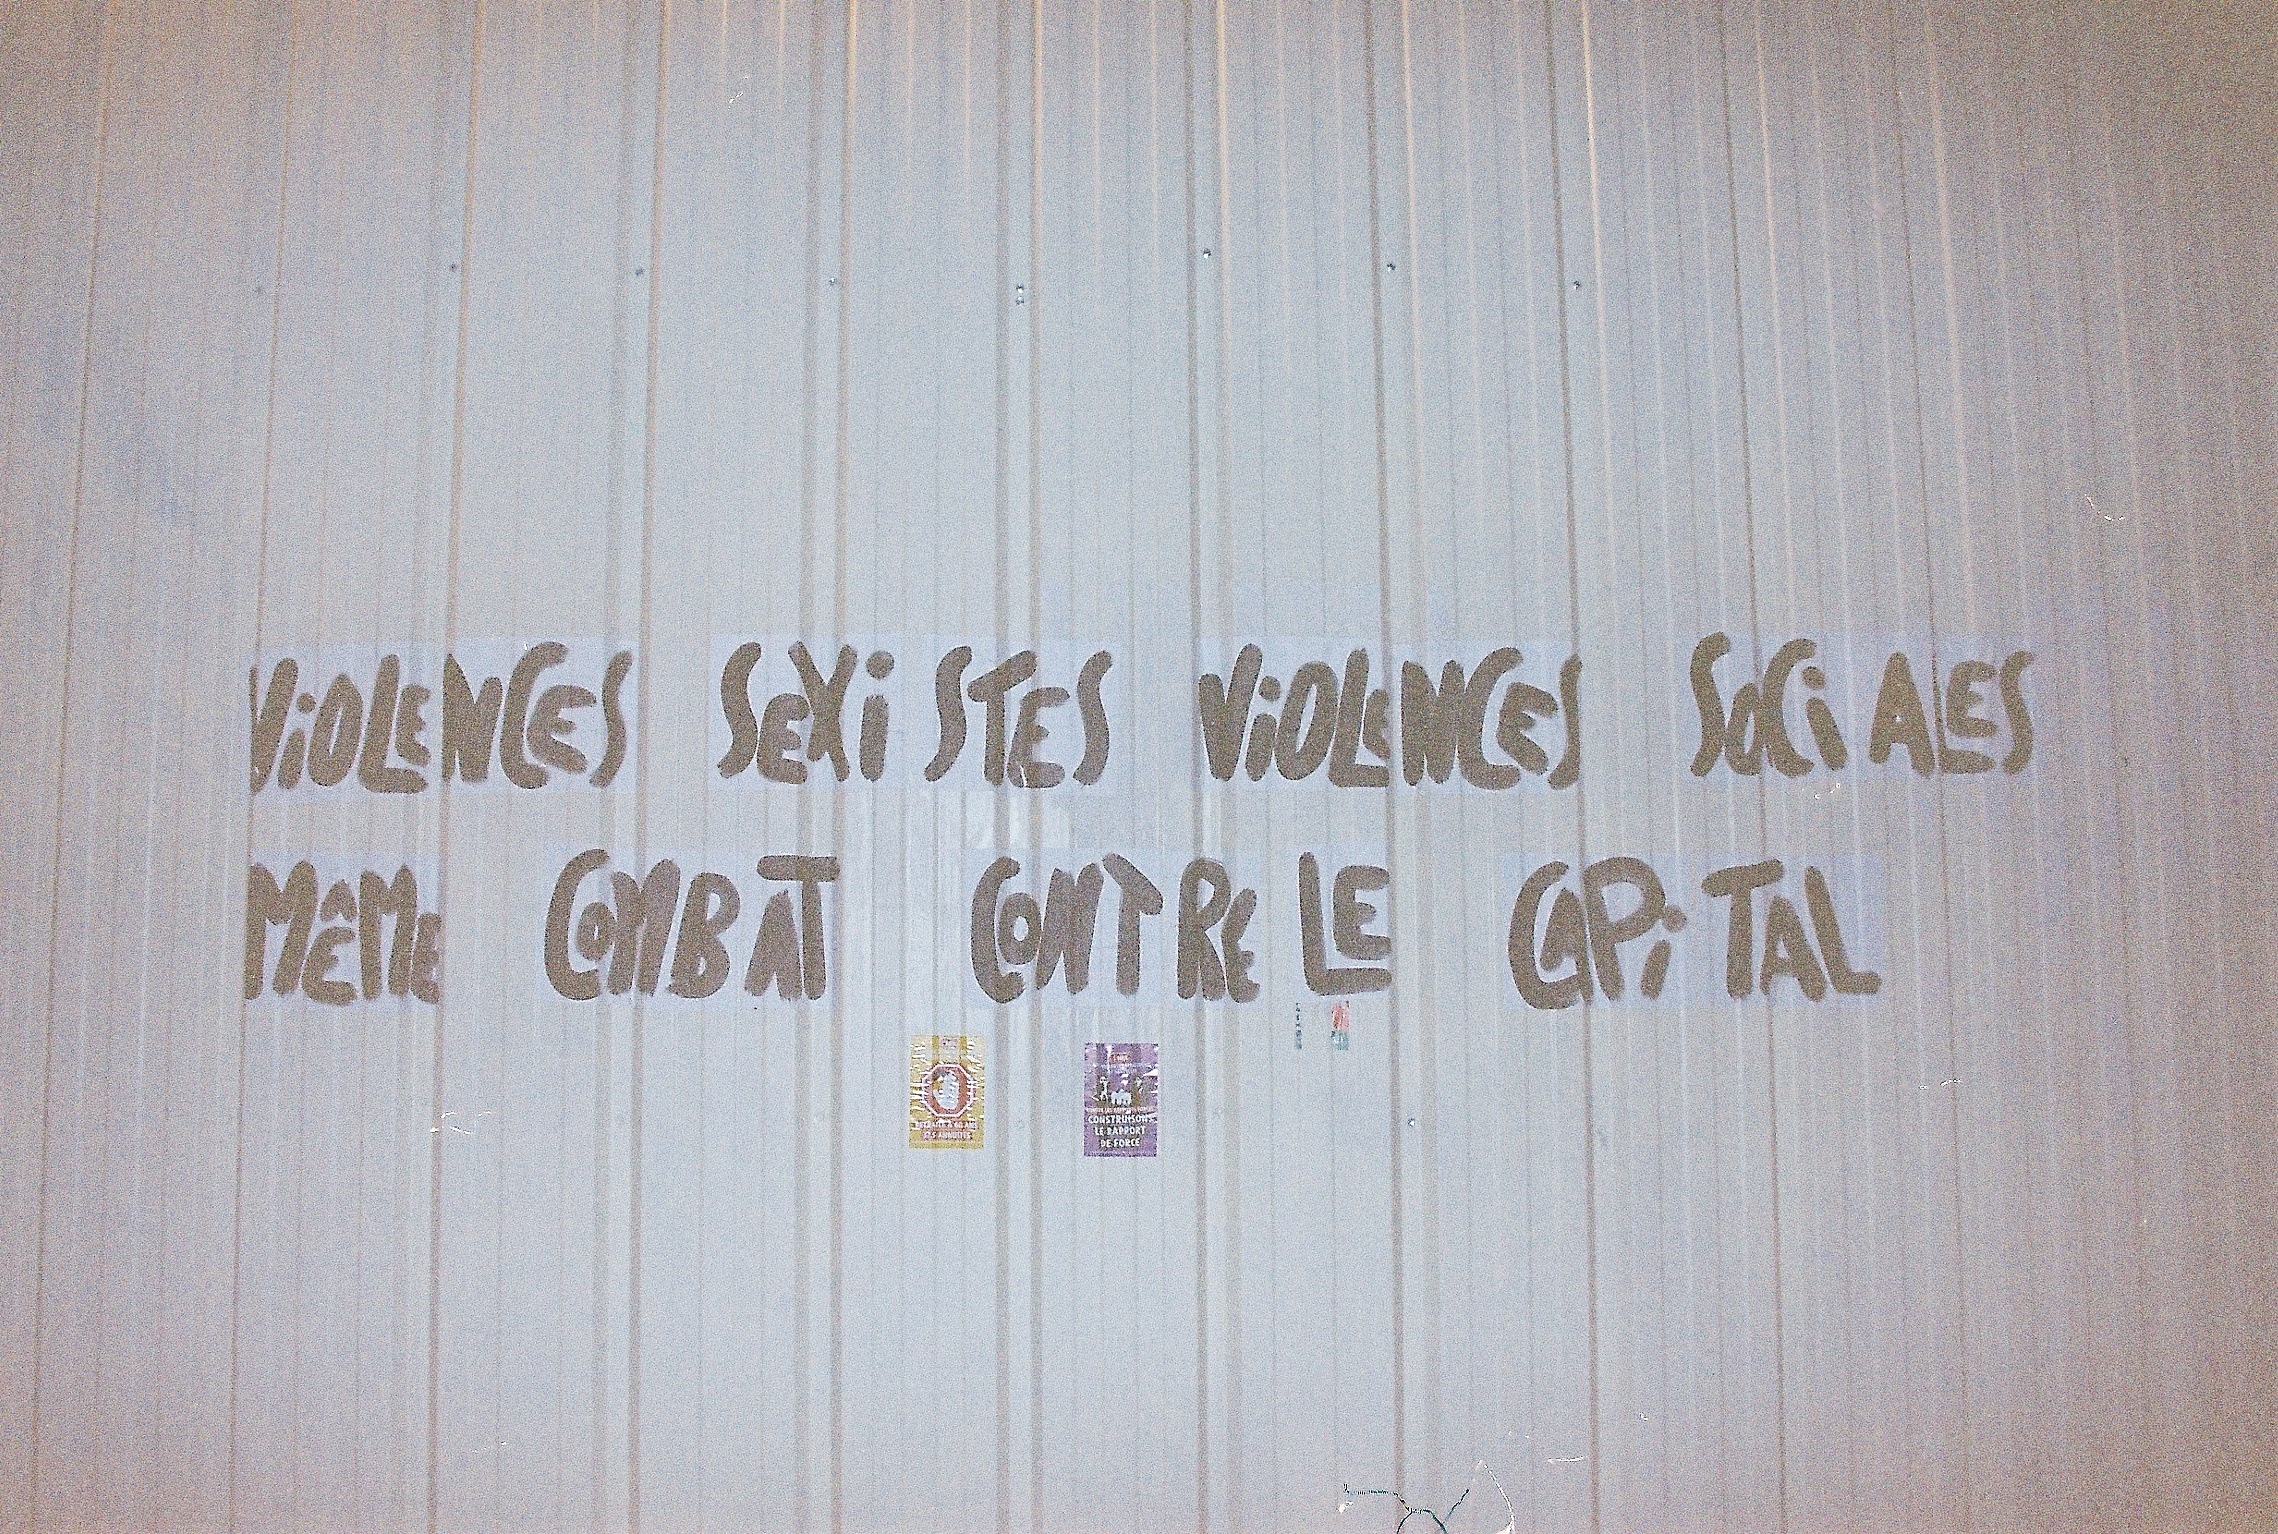 ViOLENCES SEXiSTES ViOLENCES SOCiALES
MÊME COMBAT CONTRE LE CAPiTAL
RETRAITE A 60 ANS
37,5 ANNUITÉS
CONSTRUISONS
LE RAPPORT
DE FORCE